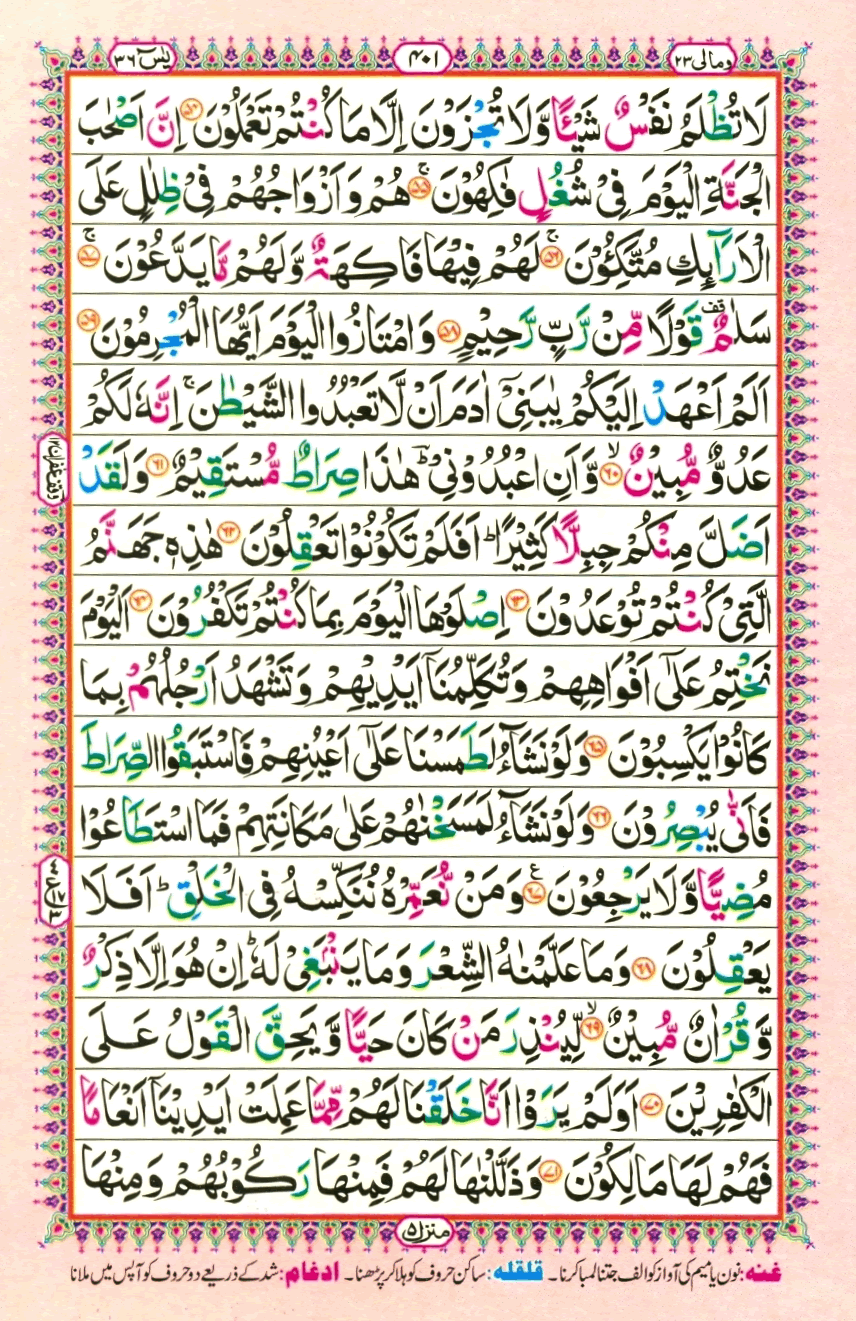 ومالی ۲۳
۴۰۱
یٰسٓ ۳۶
لَا تُظْلَمُ نَفْسٌ شَيْـًٔا وَّلَا تُجْزَوْنَ اِلَّا مَا كُنْتُمْ تَعْمَلُوْنَ ۝۵۴ اِنَّ اَصْحٰبَ
الْجَنَّةِ الْيَوْمَ فِيْ شُغُلٍ فٰكِهُوْنَ ۚ۝۵۵ هُمْ وَاَزْوَاجُهُمْ فِيْ ظِلٰلٍ عَلَى
الْاَرَآىِٕكِ مُتَّكِـُٔوْنَ ۚ۝۵۶ لَهُمْ فِيْهَا فَاكِهَةٌ وَّلَهُمْ مَّا يَدَّعُوْنَ ۚ۝۵۷
سَلٰمٌ ۫ قَوْلًا مِّنْ رَّبٍّ رَّحِيْمٍ ۝۵۸ وَامْتَازُوا الْيَوْمَ اَيُّهَا الْمُجْرِمُوْنَ ۝۵۹
اَلَمْ اَعْهَدْ اِلَيْكُمْ يٰبَنِيْٓ اٰدَمَ اَنْ لَّا تَعْبُدُوا الشَّيْطٰنَ ۚ اِنَّهٗ لَكُمْ
عَدُوٌّ مُّبِيْنٌ ۙ۝۶۰ وَّاَنِ اعْبُدُوْنِيْ ؕ هٰذَا صِرَاطٌ مُّسْتَقِيْمٌ ۝۶۱ وَلَقَدْ
اَضَلَّ مِنْكُمْ جِبِلًّا كَثِيْرًا ؕ اَفَلَمْ تَكُوْنُوْا تَعْقِلُوْنَ ۝۶۲ هٰذِهٖ جَهَنَّمُ
الَّتِيْ كُنْتُمْ تُوْعَدُوْنَ ۝۶۳ اِصْلَوْهَا الْيَوْمَ بِمَا كُنْتُمْ تَكْفُرُوْنَ ۝۶۴ اَلْيَوْمَ
نَخْتِمُ عَلٰٓى اَفْوَاهِهِمْ وَتُكَلِّمُنَآ اَيْدِيْهِمْ وَتَشْهَدُ اَرْجُلُهُمْ بِمَا
كَانُوْا يَكْسِبُوْنَ ۝۶۵ وَلَوْ نَشَآءُ لَطَمَسْنَا عَلٰٓى اَعْيُنِهِمْ فَاسْتَبَقُوا الصِّرَاطَ
فَاَنّٰى يُبْصِرُوْنَ ۝۶۶ وَلَوْ نَشَآءُ لَمَسَخْنٰهُمْ عَلٰى مَكَانَتِهِمْ فَمَا اسْتَطَاعُوْا
مُضِيًّا وَّلَا يَرْجِعُوْنَ ۝۶۷ ع وَمَنْ نُّعَمِّرْهُ نُنَكِّسْهُ فِي الْخَلْقِ ؕ اَفَلَا
يَعْقِلُوْنَ ۝۶۸ وَمَا عَلَّمْنٰهُ الشِّعْرَ وَمَا يَنْۢبَغِيْ لَهٗ ؕ اِنْ هُوَ اِلَّا ذِكْرٌ
وَّقُرْاٰنٌ مُّبِيْنٌ ۙ۝۶۹ لِّيُنْذِرَ مَنْ كَانَ حَيًّا وَّيَحِقَّ الْقَوْلُ عَلَى
الْكٰفِرِيْنَ ۝۷۰ اَوَلَمْ يَرَوْا اَنَّا خَلَقْنَا لَهُمْ مِّمَّا عَمِلَتْ اَيْدِيْنَآ اَنْعَامًا
فَهُمْ لَهَا مَالِكُوْنَ ۝۷۱ وَذَلَّلْنٰهَا لَهُمْ فَمِنْهَا رَكُوْبُهُمْ وَمِنْهَا
وقف غفران
منزل ۵
غنه: نون یا میم کی آواز کو الف جتنا لمبا کرنا۔ قلقله: ساکن حروف کو ہلا کر پڑھنا۔ ادغام: شد کے ذریعے دو حروف کو آپس میں ملانا